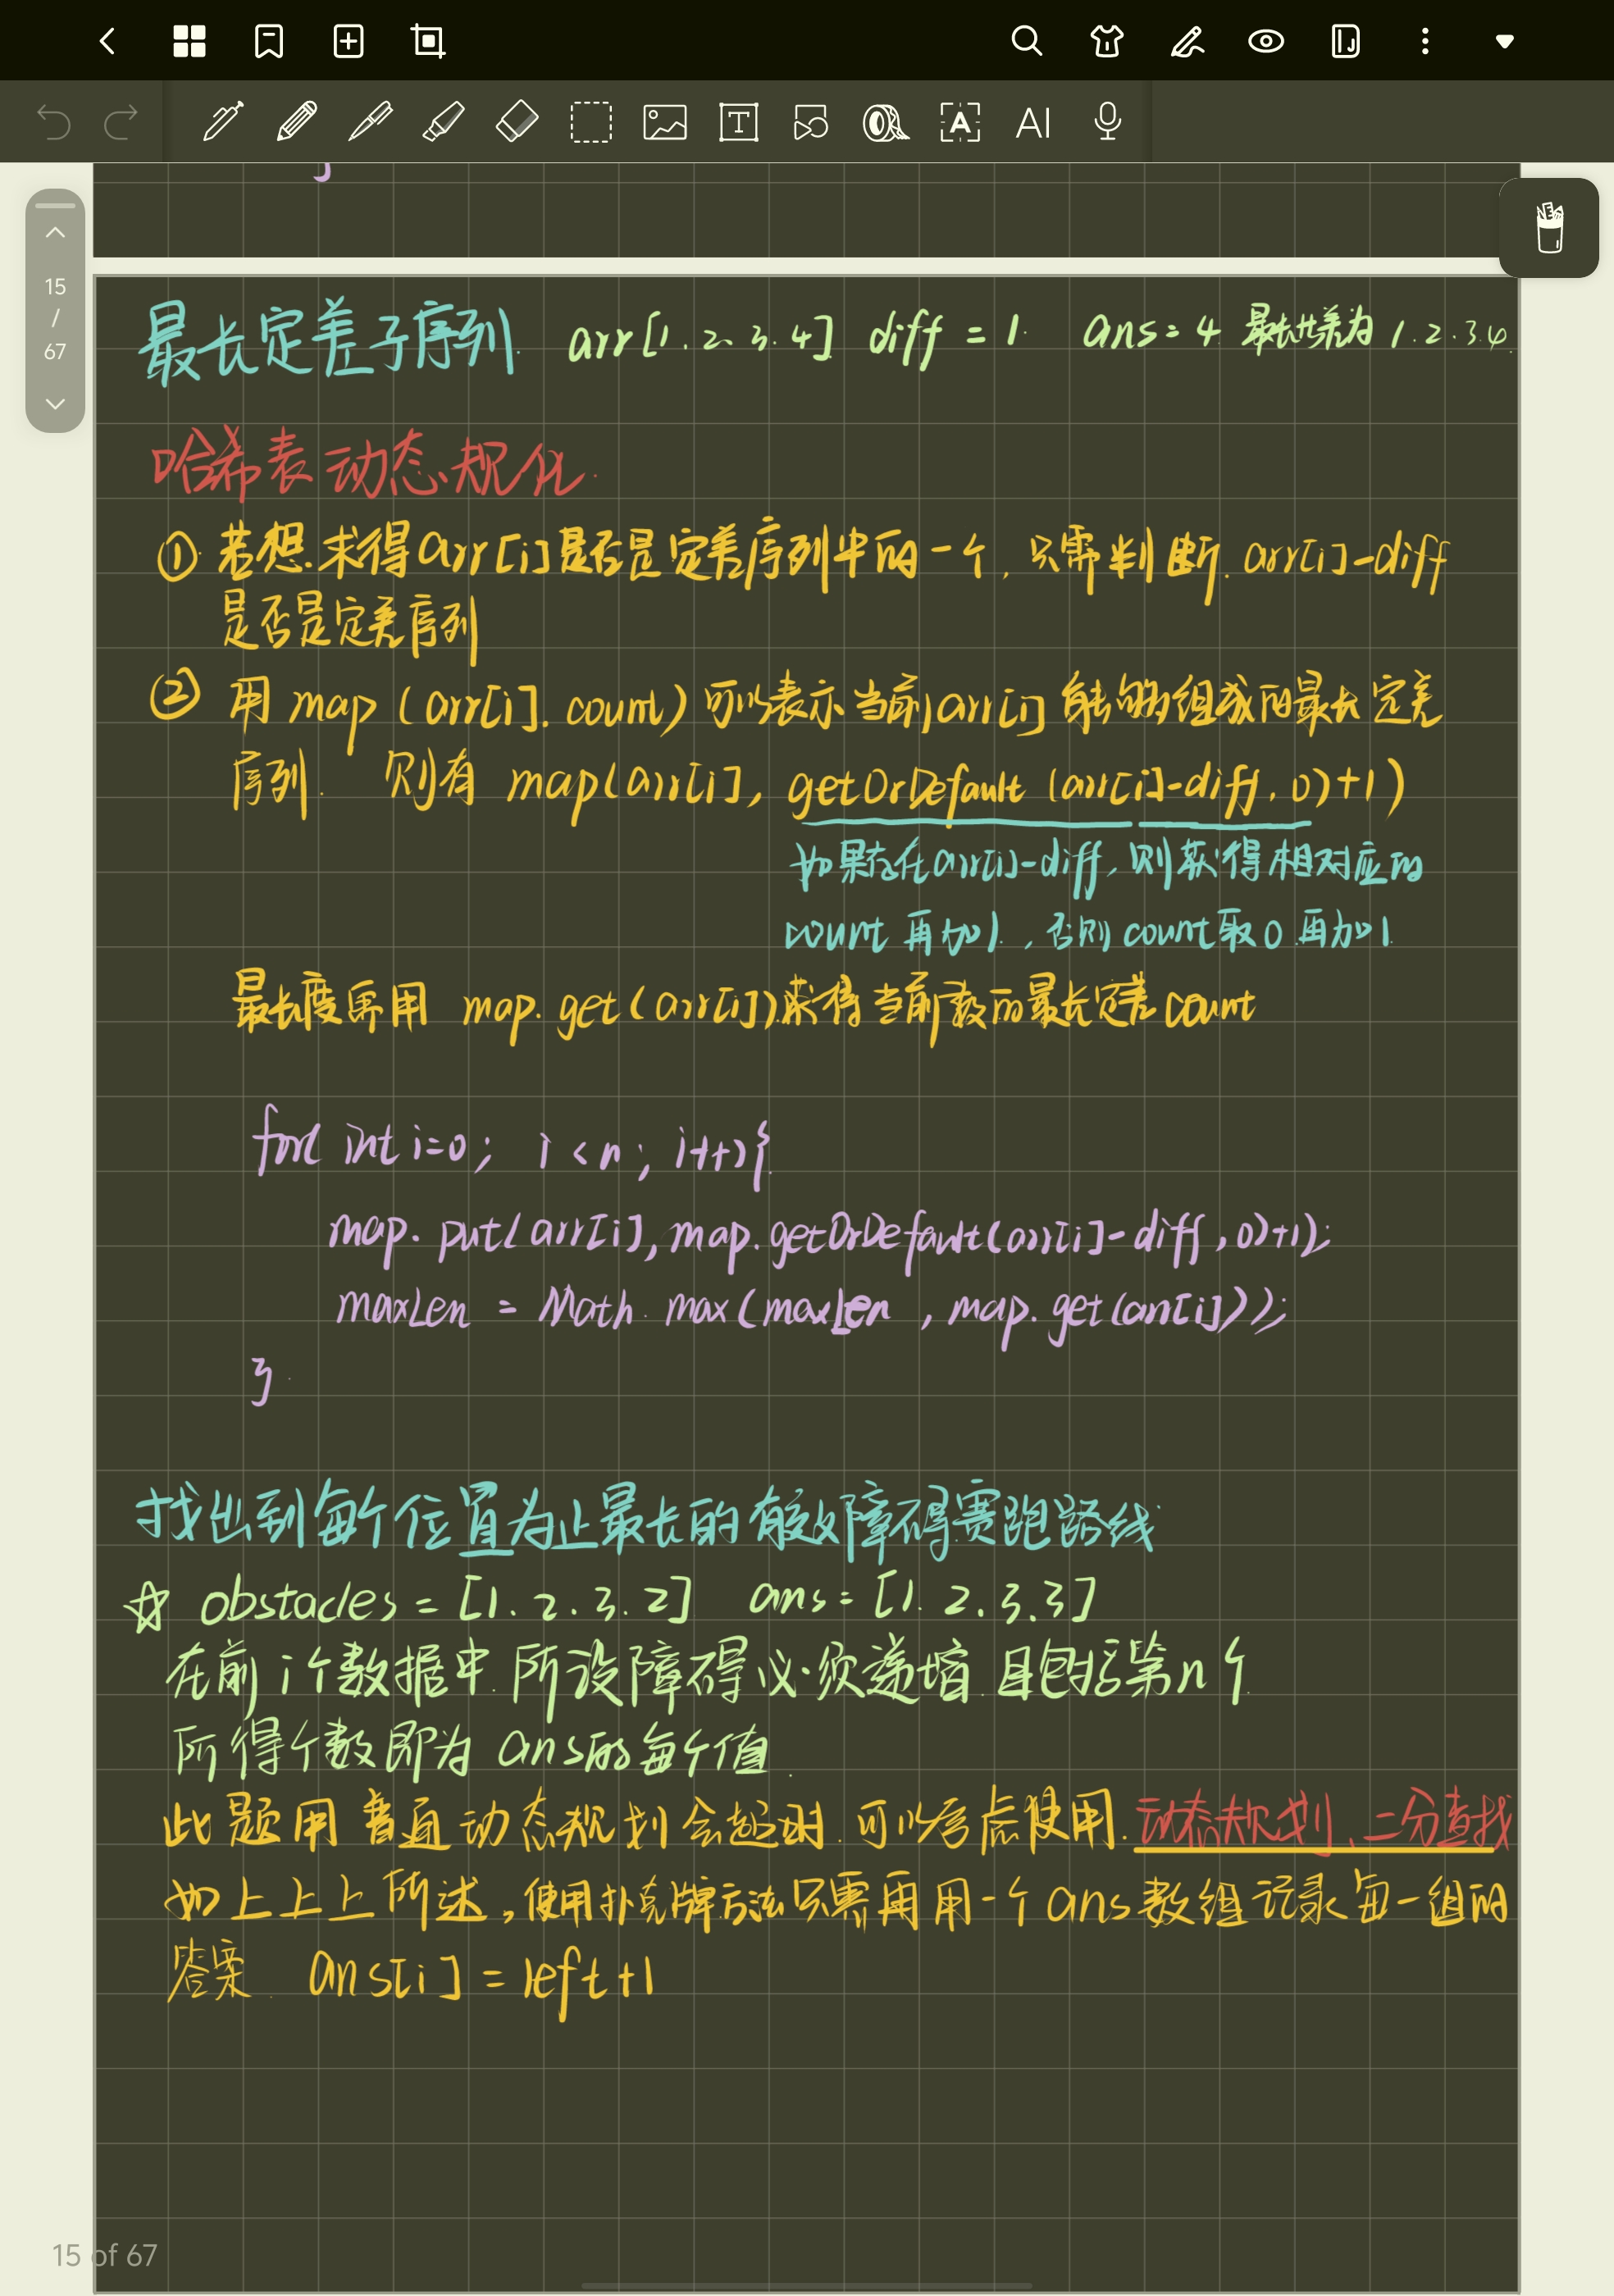 A
AI
15
/
67
最长定差子序列. arr[1.2.3.4] diff = 1. ans=4 最长共差为 1.2.3.4
哈希表动态规化.
① 若想求得arr[i]是否是定差序列中的一个, 只需判断. arr[i]-diff
是否是定差序列
② 用 map (arr[i]. count) 可以表示当前arr[i] 能够组成的最长定差
序列. 则有 map(arr[i], getOrDefault (arr[i]-diff, 0)+1)
如果存在arr[i]-diff, 则获得相对应的
count 再加1., 否则 count取0 再加1
最长度需用 map.get(arr[i])获得当前数的最长定差count
for( int i=0; i < n; i++){
map.put(arr[i], map.getOrDefault(arr[i]-diff, 0)+1);
maxLen = Math.max(maxLen, map.get(arr[i]));
}
找出到每个位置为止最长的有效障碍赛跑路线
☆ obstacles = [1.2.3.2] ans = [1.2.3.3]
在前i个数据中.所设障碍必须递增.且包括第n个
所得个数即为ans的每个值.
此题用普通动态规划会超时.可以考虑使用.动态规划、二分查找
如上上上所述,使用扑克牌方法只需再用一个ans数组记录每一组的
答案. ans[i] = left+1
15 of 67